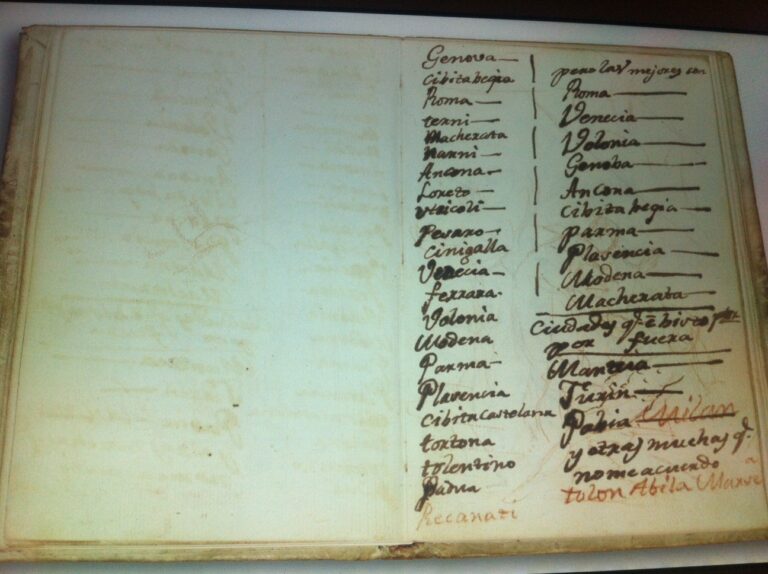 Genova
Cibitabegia
Roma
terni
Macherata
Narni
Ancona
Loreto
Utricoli
Pesaro
Cinigalla
Venecia
ferrara.
Volonia
Modena
Parma
Plasencia
Cibita Castelana
tortona
tolentino
Padua
Recanati
pero las mejores son
Roma
Venecia
Volonia
Genoba
Ancona
Cibitabegia
parma
Plasencia
Modena
Macherata
Ciudades q.e è bisto
por fuera
Mantua
Turin
Pabia Milan
y otras muchas q.e
no me acuerdo
tolon Abila Marse